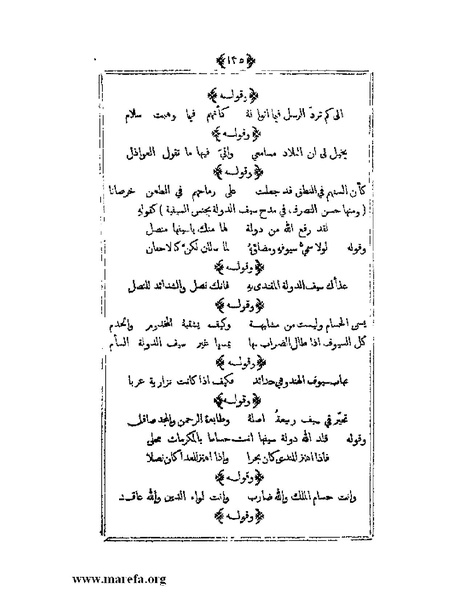 ﴿١٣٥﴾
﴿وقوله﴾
الى كم تردّ الرسل فيما اتوا له كأنهم فيما وهبت سلام
﴿وقوله﴾
يخيل لي ان البلاد مسامعي واني فيها ما تقول العواذل
﴿وقوله﴾
كأن السنهم في النطق قد جعلت على رماحهم في الطعن خرصانا
(ومنها حسن التصرف في مدح سيف الدولة بجنس السيفية) كقوله
لقد رفع الله من دولة لها منك ياسيفها منصل
وقوله لولا سميّ سيوفه ومضاؤه لما سللن لكنّ كالاجفان
﴿وقوله﴾
عذل سيف الدولة المفتدى به فانك نصل والشدائد للنصل
﴿وقوله﴾
يسمى الحسام وليست من مشابهة وكيف يشتبه المخدوم والخدم
كل السيوف اذا طال الضراب بها يمسها غير سيف الدولة السأم
﴿وقوله﴾
تهاب سيوف الهند وهي حدائد فكيف اذا كانت نزارية عربا
﴿وقوله﴾
تحير في سيف ربيعة اصله وطابعه الرحمن والمجد صاقل
وقوله قلد الله دولة سيفها انت حساما بالمكرمات محلى
فاذا اهتز للندى كان بحرا واذا اهتز للعدا كان نصلا
﴿وقوله﴾
وانت حسام الملك والله ضارب وانت لواء الدين والله عاقد
﴿وقوله﴾
www.marefa.org